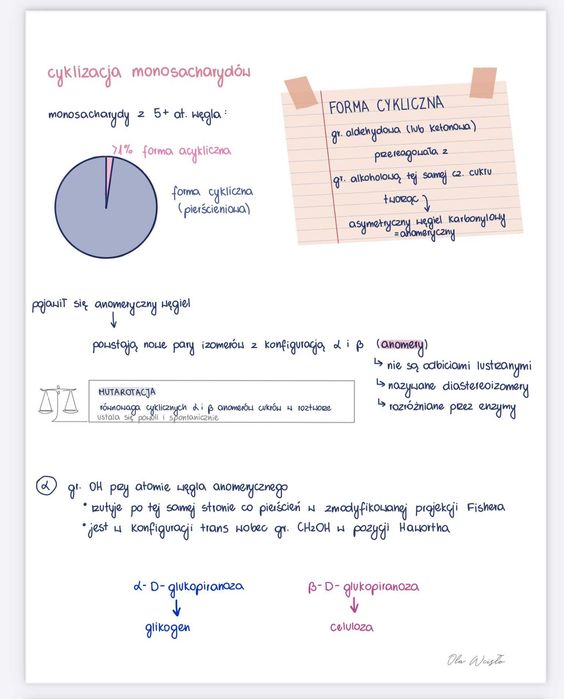 cyklizacja monosacharydów
monosacharydy z 5+ at. węgla:
>1% forma acykliczna
forma cykliczna
(pierścieniowa)
FORMA CYKLICZNA
gr. aldehydowa (lub ketonowa)
przereagowała z
gr. alkoholową tej samej cz. cukru
tworząc
asymetryczny węgiel karbonylowy
=anomeryczny
pojawił się anomeryczny węgiel
powstają nowe pary izomerów z konfiguracją α i β (anomery)
↳ nie są odbiciami lustrzanymi
↳ nazywane diastereoizomery
↳ rozróżniane przez enzymy
MUTAROTACJA
równowaga cyklicznych α i β anomerów cukrów w roztworze
ustala się powoli i spontanicznie
α gr. OH przy atomie węgla anomerycznego
• rzutuje po tej samej stronie co pierścień w zmodyfikowanej projekcji Fishera
• jest w konfiguracji trans wobec gr. CH2OH w pozycji Hawortha
α-D-glukopiranoza
glikogen
β-D-glukopiranoza
celuloza
Ola Wcisło